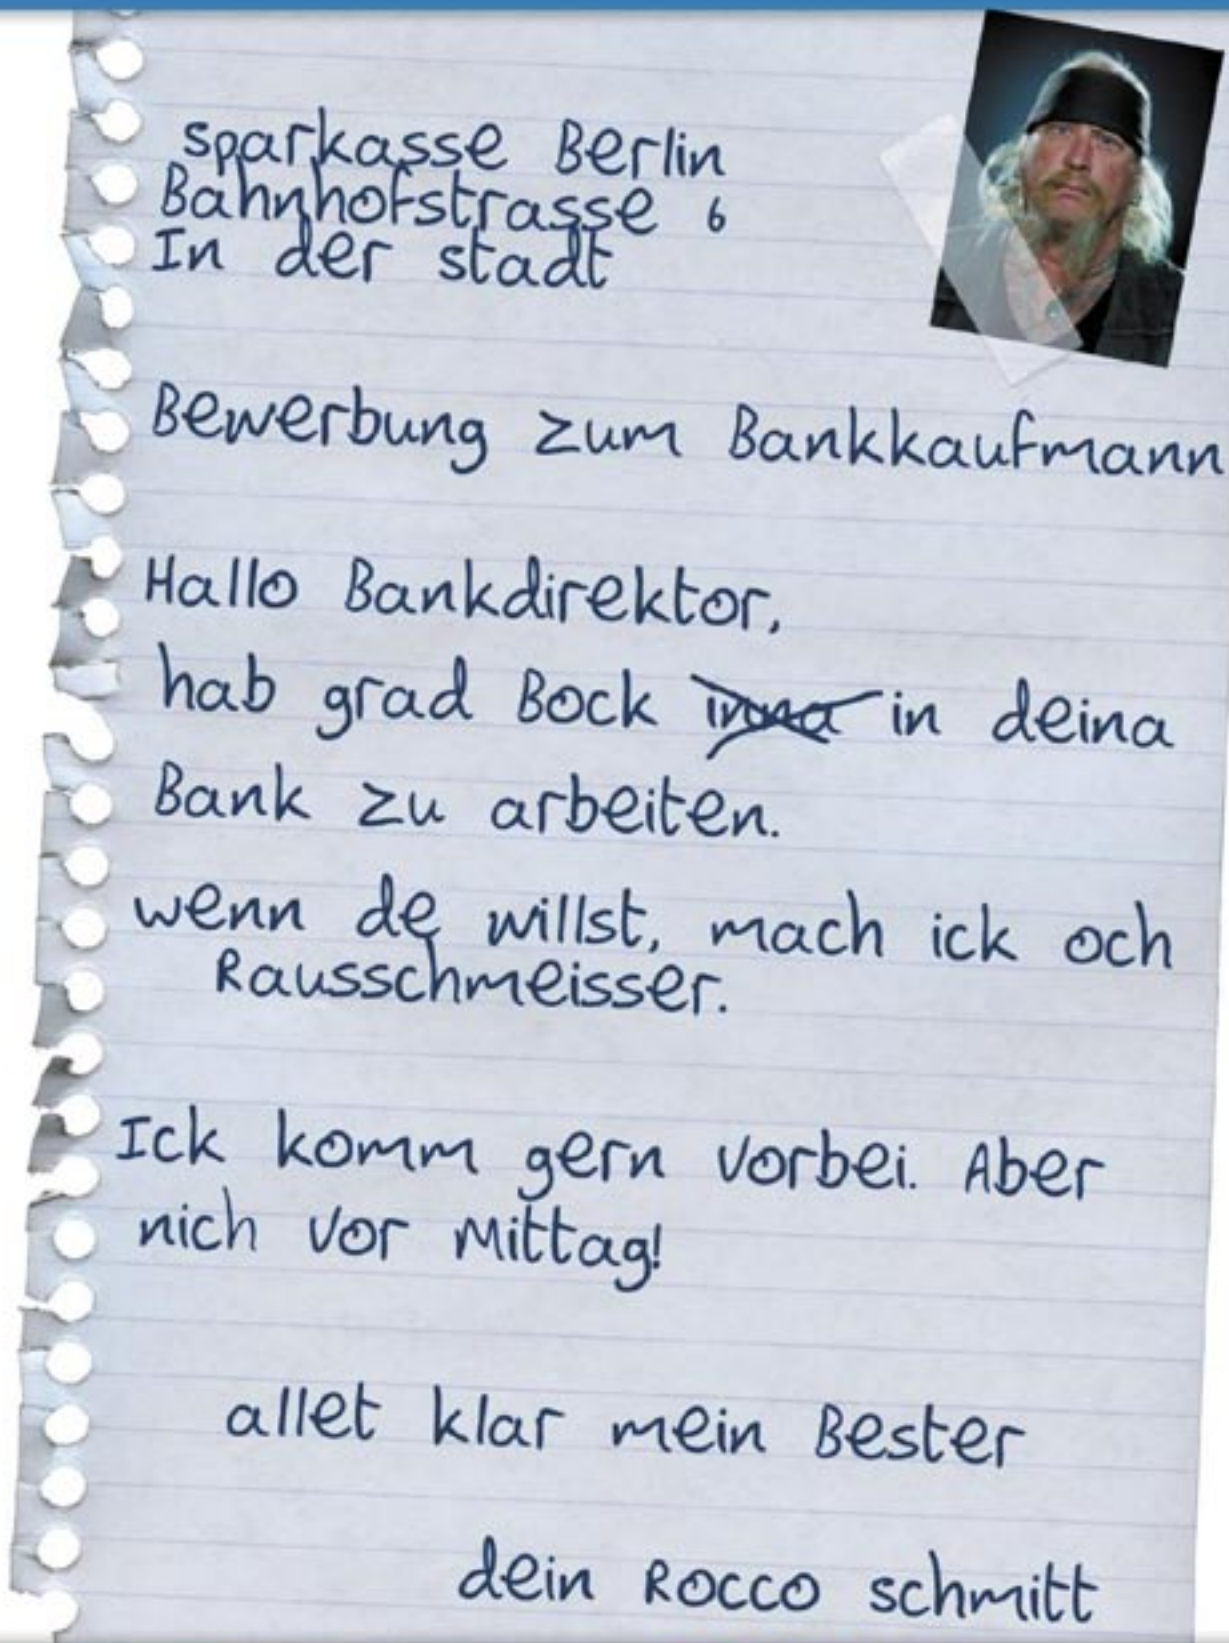 sparkasse Berlin
Bahnhofstrasse 6
In der stadt
Bewerbung zum Bankkaufmann
Hallo Bankdirektor,
hab grad Bock inna in deina
Bank zu arbeiten.
wenn de willst, mach ick och
Rausschmeisser.
Ick komm gern vorbei. Aber
nich vor Mittag!
allet klar mein Bester
dein Rocco schmitt